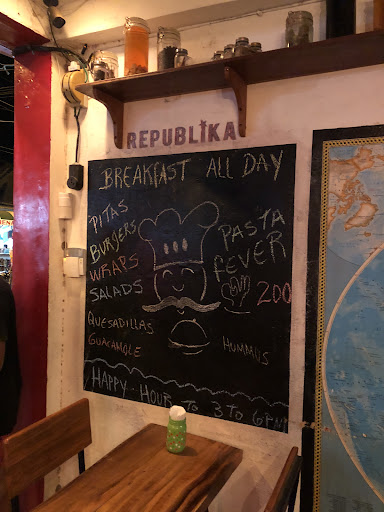 REPUBLIKA
BREAKFAST ALL DAY
PITAS
BURGERS
WRAPS
SALADS
QUESADILLAS
GUACAMOLE
PASTA
FEVER
200
HUMMUS
HAPPY-HOUR TO 3 TO 6PM